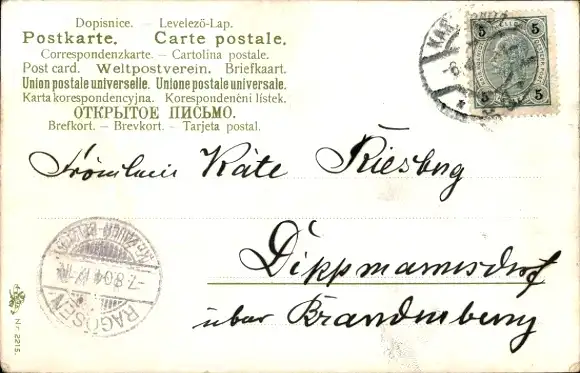 Dopisnice. - Levelező-Lap.
Postkarte. - Carte postale.
Correspondenzkarte. - Cartolina postale.
Post card. - Weltpostverein. - Briefkaart.
Union postale universelle. Unione postale universale.
Karta korespondencyjna. Korespondenčni listek.
ОТКРЫТОЕ ПИСЬМО.
Brefkort. - Brevkort. - Tarjeta postal.
5 5
5 5
Fräulein Käte Riesberg
Dippmannsdorf
über Brandenburg
-7.8.04
RAGÖSEN
Nr. 2215.